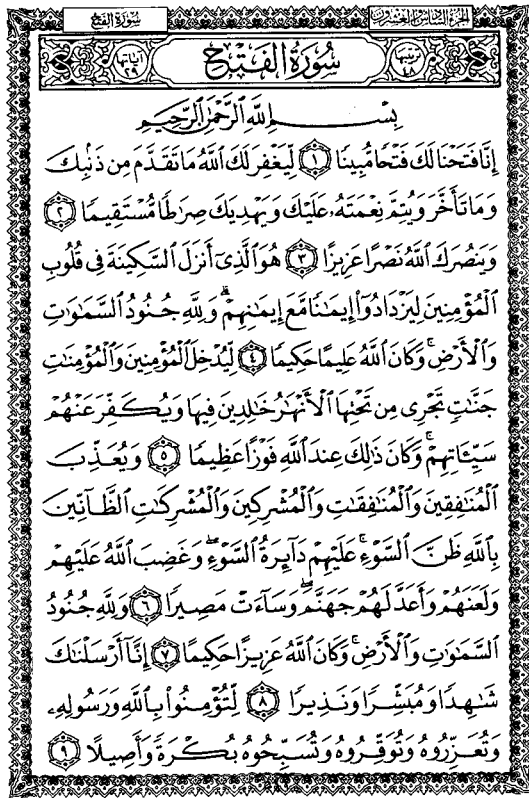 سورة الفتح
الجزء السادس والعشرون
ترتيبها ٤٨
سُورَةُ الْفَتْحِ
آياتها ٢٩
بِسْمِ اللَّهِ الرَّحْمَٰنِ الرَّحِيمِ
إِنَّا فَتَحْنَا لَكَ فَتْحًا مُّبِينًا ١ لِّيَغْفِرَ لَكَ اللَّهُ مَا تَقَدَّمَ مِن ذَنۢبِكَ
وَمَا تَأَخَّرَ وَيُتِمَّ نِعْمَتَهُۥ عَلَيْكَ وَيَهْدِيَكَ صِرَٰطًا مُّسْتَقِيمًا ٢
وَيَنصُرَكَ اللَّهُ نَصْرًا عَزِيزًا ٣ هُوَ الَّذِىٓ أَنزَلَ السَّكِينَةَ فِى قُلُوبِ
الْمُؤْمِنِينَ لِيَزْدَادُوٓا۟ إِيمَٰنًا مَّعَ إِيمَٰنِهِمْ ۗ وَلِلَّهِ جُنُودُ السَّمَٰوَٰتِ
وَالْأَرْضِ ۚ وَكَانَ اللَّهُ عَلِيمًا حَكِيمًا ٤ لِّيُدْخِلَ الْمُؤْمِنِينَ وَالْمُؤْمِنَٰتِ
جَنَّٰتٍ تَجْرِى مِن تَحْتِهَا الْأَنْهَٰرُ خَٰلِدِينَ فِيهَا وَيُكَفِّرَ عَنْهُمْ
سَيِّـَٔاتِهِمْ ۚ وَكَانَ ذَٰلِكَ عِندَ اللَّهِ فَوْزًا عَظِيمًا ٥ وَيُعَذِّبَ
الْمُنَٰفِقِينَ وَالْمُنَٰفِقَٰتِ وَالْمُشْرِكِينَ وَالْمُشْرِكَٰتِ الظَّآنِّينَ
بِاللَّهِ ظَنَّ السَّوْءِ ۚ عَلَيْهِمْ دَآئِرَةُ السَّوْءِ ۖ وَغَضِبَ اللَّهُ عَلَيْهِمْ
وَلَعَنَهُمْ وَأَعَدَّ لَهُمْ جَهَنَّمَ ۖ وَسَآءَتْ مَصِيرًا ٦ وَلِلَّهِ جُنُودُ
السَّمَٰوَٰتِ وَالْأَرْضِ ۚ وَكَانَ اللَّهُ عَزِيزًا حَكِيمًا ٧ إِنَّآ أَرْسَلْنَٰكَ
شَٰهِدًا وَمُبَشِّرًا وَنَذِيرًا ٨ لِّتُؤْمِنُوا۟ بِاللَّهِ وَرَسُولِهِۦ
وَتُعَزِّرُوهُ وَتُوَقِّرُوهُ وَتُسَبِّحُوهُ بُكْرَةً وَأَصِيلًا ٩